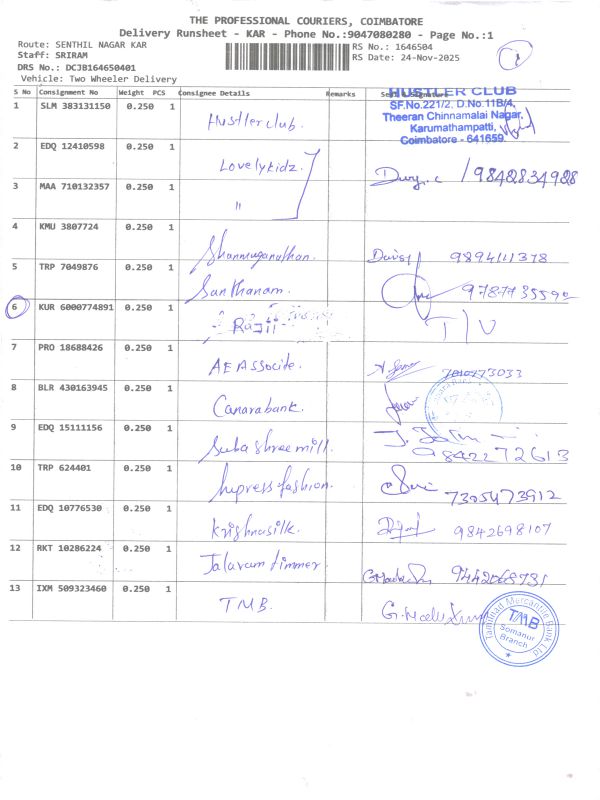 THE PROFESSIONAL COURIERS, COIMBATORE
Delivery Runsheet - KAR - Phone No.:9047080280 - Page No.:1
Route: SENTHIL NAGAR KAR
RS No.: 1646504
Staff: SRIRAM
RS Date: 24-Nov-2025
DRS No.: DCJB164650401
Vehicle: Two Wheeler Delivery
S No Consignment No Weight PCS Consignee Details Remarks Seal & Signature
HUSTLER CLUB
SF.No.221/2, D.No.11B/4,
Theeran Chinnamalai Nagar,
Karumathampatti,
Coimbatore - 641659.
1 SLM 383131150 0.250 1 Hustler club.
2 EDQ 12410598 0.250 1 Lovely kidz. 9842834928
3 MAA 710132357 0.250 1 "
4 KMU 3807724 0.250 1 Shanmuganathan. Daisy 9894111378
5 TRP 7049876 0.250 1 Santhanam. 9787735590
6 KUR 6000774891 0.250 1 Rajii T/V
7 PRO 18688426 0.250 1 AE Associte. 7010173033
8 BLR 430163945 0.250 1 Canara bank.
9 EDQ 15111156 0.250 1 Suba shree mill. 9842272613
10 TRP 624401 0.250 1 Inpress fashion. 7305473912
11 EDQ 10776530 0.250 1 Krishna silk. 9842698107
12 RKT 10286224 0.250 1 Jalaram timmer.
13 IXM 509323460 0.250 1 TMB.
Tamilnad Mercantile Bank Ltd
TMB
Somanur
Branch